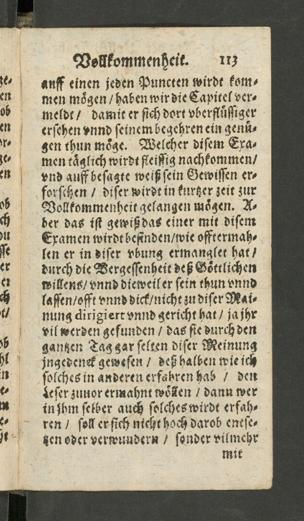 Vollkommenheit. 113
auff einen jeden Puncten wirdt kom-
men mögen / haben wir die Capitel ver-
meldt / damit er sich dort vberflüssiger
ersehen vnnd seinem begehren ein genü-
gen thun möge. Welcher disem Exa-
men täglich wirdt fleissig nachkommen /
vnd auff besagte weiß sein Gewissen er-
forschen / diser wirdt in kurtzer zeit zur
Vollkommenheit gelangen mögen. A-
ber das ist gewiß das einer mit disem
Examen wirdt befinden / wie offtermah-
len er in diser vbung ermanglet hat /
durch die Vergessenheit deß Göttlichen
willens / vnnd dieweil er sein thun vnnd
lassen / offt vnnd dick / nicht zu diser Mai-
nung dirigiert vnnd gericht hat / ja jhr
vil werden gefunden / das sie durch den
gantzen Tag gar selten diser Meinung
jngedenck gewesen / deß halben wie ich
solches in anderen erfahren hab / den
Leser zuuor ermahnt wöllen / dann wer
in jhm selber auch solches wirdt erfah-
ren / soll er sich nicht hoch darob entse-
tzen oder verwundern / sonder vilmehr
mit